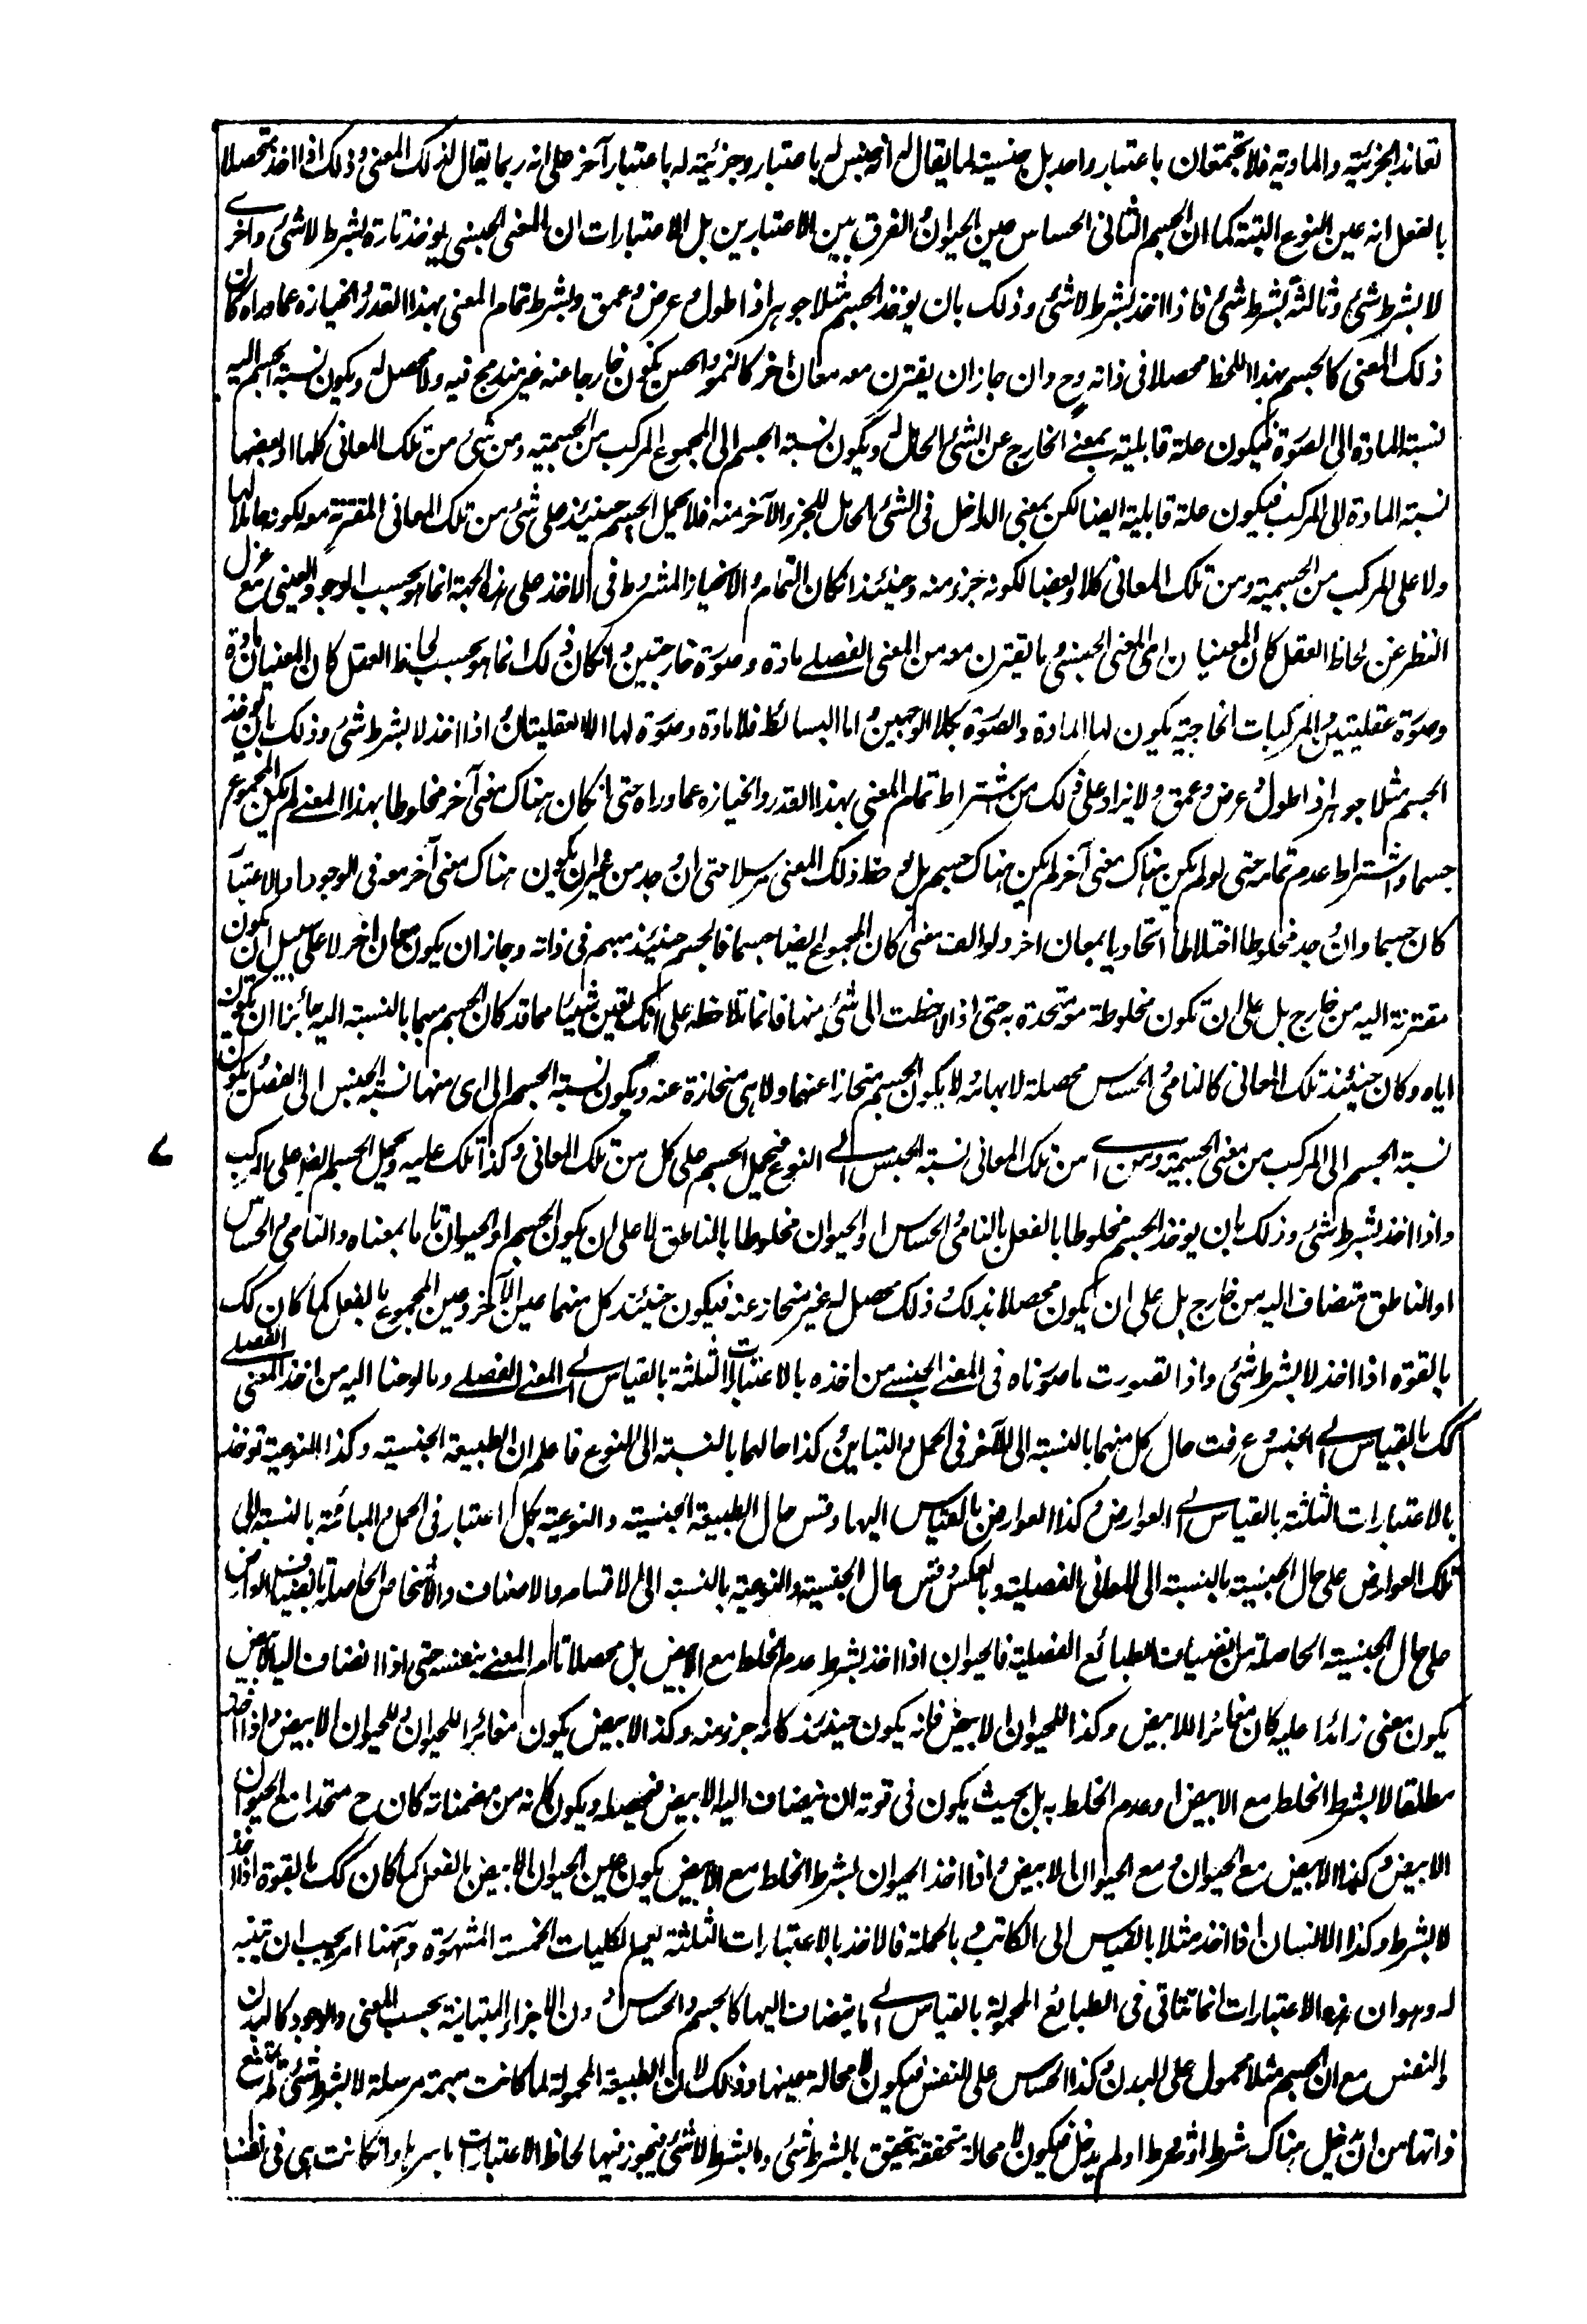 تعاند الجزئية والمادية فلا تجتمعان باعتبار واحد بل جنسية لما يقال له انه جنس له باعتبار وجزئية له باعتبار آخر على انه ربما يقال لذلك المعنى وذلك اذا اخذ متحصلا
بالفعل انه عين النوع البتة كما ان الجسم الثانى الحساس عين الحيوان والفرق بين الاعتبارين بل الاعتبارات ان المعنى الجنسى يوخذ تارة بشرط لا شئ واخرى
لا بشرط شئ وثالثة بشرط شئ فاذا اخذ بشرط لا شئ وذلك بان يوخذ الجسم مثلا جوهرا ذا طول وعرض وعمق وبشرط تمام المعنى بهذا القدر وانحيازه عما وراه كان
ذلك المعنى كالجسم بهذا اللحظ محصلا فى ذاته وح وان جاز ان يقترن معه معان اخر كالنمو والحس يكون خارجا عنه غير مندرج فيه ولا محصل له ويكون نسبة الجسم اليه
نسبة المادة الى الصورة فيكون علة قابلية بمعنى الخارج عن الشئ الحال له ويكون نسبة الجسم الى المجموع المركب من الجسمية ومن شئ من تلك المعانى كلها او بعضها
نسبة المادة الى المركب فيكون علة قابلية ايضا لكن بمعنى الداخل فى الشئ الحامل للجزء الآخر منه فلا يحمل الجسم حينئذ على شئ من تلك المعانى المقترنة معه لكونه حاملا لها
ولا على المركب من الجسمية ومن تلك المعانى كلا او بعضا لكونه جزء منه وحينئذ انكان التمام والانحياز المشروط فى الاخذ على هذه الجهة انما هو بحسب الوجود العينى مع عزل
النظر عن لحاظ العقل كان المعنيان اى المعنى الجنسى وما يقترن معه من المعنى الفصلے مادة وصورة خارجيتين وانكان ذلك انما هو بحسب لحاظ العقل كان المعنيان مادة
وصورة عقليتين والمركبات الخارجية يكون لها المادة والصورة بكلا الوجهين واما البسائط فلا مادة وصورة لها الا العقليتان واذا اخذ لا بشرط شئ وذلك بان يوخذ
الجسم مثلا جوهرا ذا طول وعرض وعمق ولا يزاد على ذلك من اشتراط تمام المعنى بهذا القدر وانحيازه عما وراه حتى انكان هناك معنى آخر مخلوطا بهذا المعنے لم يكن المجموع
جسما واشتراط عدم تمامه حتى لو لم يكن هناك معنى آخر لم يكن هناك جسم بل يوخذ ذلك المعنى مرسلا حتى ان وجد من غير ان يكون هناك معنى آخر معه فى الوجود او بالاعتبار
كان جسما وان وجد مخلوطا اختلاطا اتحاديا بمعان اخر ولو الف معنى كان المجموع ايضا جسما فالجسم حينئذ مبهم فى ذاته وجاز ان يكون معان اخر لا على سبيل ان يكون
مقترنة اليه من خارج بل على ان تكون مخلوطة موتحدة به حتى اذا لاحظت الى شئ منها فانما تلاحظه على انك تعين شيئا مما قد كان الجسم مبهما بالنسبة اليه جائزا ان يكون
اياه وكان حينئذ تلك المعانى كالنامى والحساس محصلة لابهامه لا يكون الجسم منحازا عنها ولا هى منحازة عنه ويكون نسبة الجسم الى اى منها نسبة الجنس الى الفصل ويكون
نسبة الجسم الى المركب من معنى الجسمية ومن اے من تلك المعانى نسبة الجنس الے النوع فيحمل الجسم على كل من تلك المعانى وكذا تلك عليه ويحمل الجسم ايضا على المركب
واذا اخذ بشرط شئ وذلك بان يوخذ الجسم مخلوطا بالفعل بالنامى والحساس او الحيوان مخلوطا بالناطق لا على ان يكون الجسم او الحيوان تاما بمعناه والنامى والحساس
او الناطق منضاف اليه من خارج بل على ان يكون محصلا بذلك وذلك محصل له غير منحاز عنه فيكون حينئذ كل منهما عين الآخر وعين المجموع بالفعل كما كان كك
بالقوة اذا اخذ لا بشرط شئ واذا تصورت ما صورناه فى المعنے الجنسے من اخذه بالاعتبارات الثلثة بالقياس الے المعنے الفصلے وما لوحنا اليه من اخذ المعنى الفصلے
كك بالقياس الے الجنس وعرفت حال كل منهما بالنسبة الى الآخر فى الحمل والتباين وكذا حالهما بالنسبة الى النوع فاعلم ان الطبيعة الجنسية وكذا النوعية توخذ
بالاعتبارات الثلثة بالقياس الے العوارض وكذا العوارض بالقياس اليها وقس حال الطبيعة الجنسية والنوعية بكل اعتبار فى الحمل والمبائنة بالنسبة الى
تلك العوارض على حال الجنسية بالنسبة الى المعانى الفصلية وبالعكس وقس حال الجنسية والنوعية بالنسبة الى الاقسام والاصناف والاشخاص الحاصلة بانضياف العوارض
على حال الجنسية الحاصلة من انضياف الطبائع الفصلية فالحيوان اذا اخذ بشرط عدم الخلط مع الابيض بل محصلا تام المعنے بنفسه حتى اذا انضاف اليه الابيض
يكون معنى زائدا عليه كان مغائرا للابيض وكذا للحيوان الابيض فانه يكون حينئذ كانه جزء منه وكذا الابيض يكون مغائرا للحيوان وللحيوان الابيض واذا اخذ
مطلقا لا بشرط الخلط مع الابيض او عدم الخلط به بل بحيث يكون فى قوته ان ينضاف اليه الابيض فيحصله ويكون كانه من مضمناته كان ح متحدا مع الحيوان
الابيض وكذا الابيض مع الحيوان ومع الحيوان الابيض واذا اخذ الحيوان بشرط الخلط مع الابيض يكون عين الحيوان الابيض بالفعل كما كان كك بالقوة اذا اخذ
لا بشرط وكذا الانسان اذا اخذ مثلا بالقياس الى الكاتب وبالجملة فالاخذ بالاعتبارات الثلثة يعم الكليات الخمسة المشهورة وههنا امر يجب ان تنبه
له وهو ان هذه الاعتبارات انما تتاتى فى الطبائع المحمولة بالقياس الے ما ينضاف اليها كالجسم والحساس دون الاجزاء المتباينة بحسب المعنى والوجود كالبدن
والنفس مع ان الجسم مثلا محمول على البدن وكذا الحساس على النفس فيكون لا محالة عينها وذلك لان الطبيعة المحمولة لما كانت مبهمة مرسلة لا بشرط شئ لم تمتنع
ذاتها من ان دخل هناك شرط او شرط او لم يدخل فيكون لا محالة متحققة بتحقق ما بشرط شئ وما بشرط لا شئ فيجوز فيها لحاظ الاعتبارات باسرها وانكانت هى فى نفسها